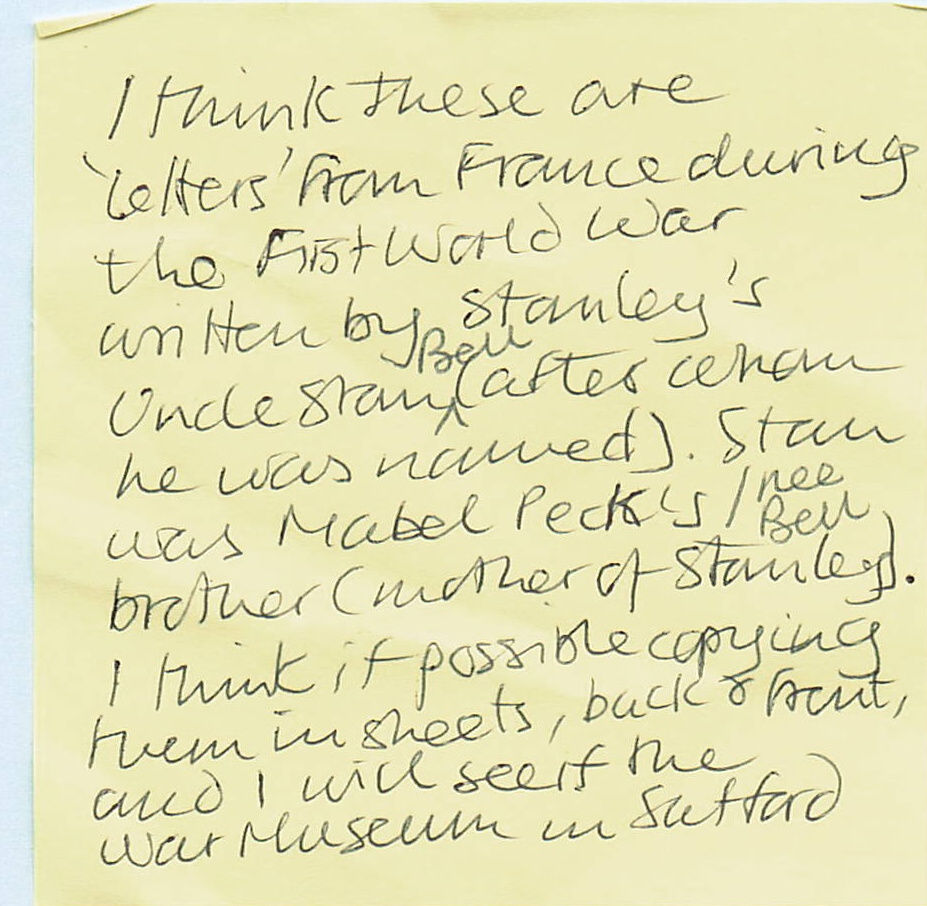 I think these are
'letters' from France during
the First World War
written by Stanley's
Uncle Stan Bell (after whom
he was named). Stan
was Mabel Peck's / nee Bell
brother (mother of Stanley).
I think if possible copying
them in sheets, back & front,
and I will see if the
War Museum in Salford